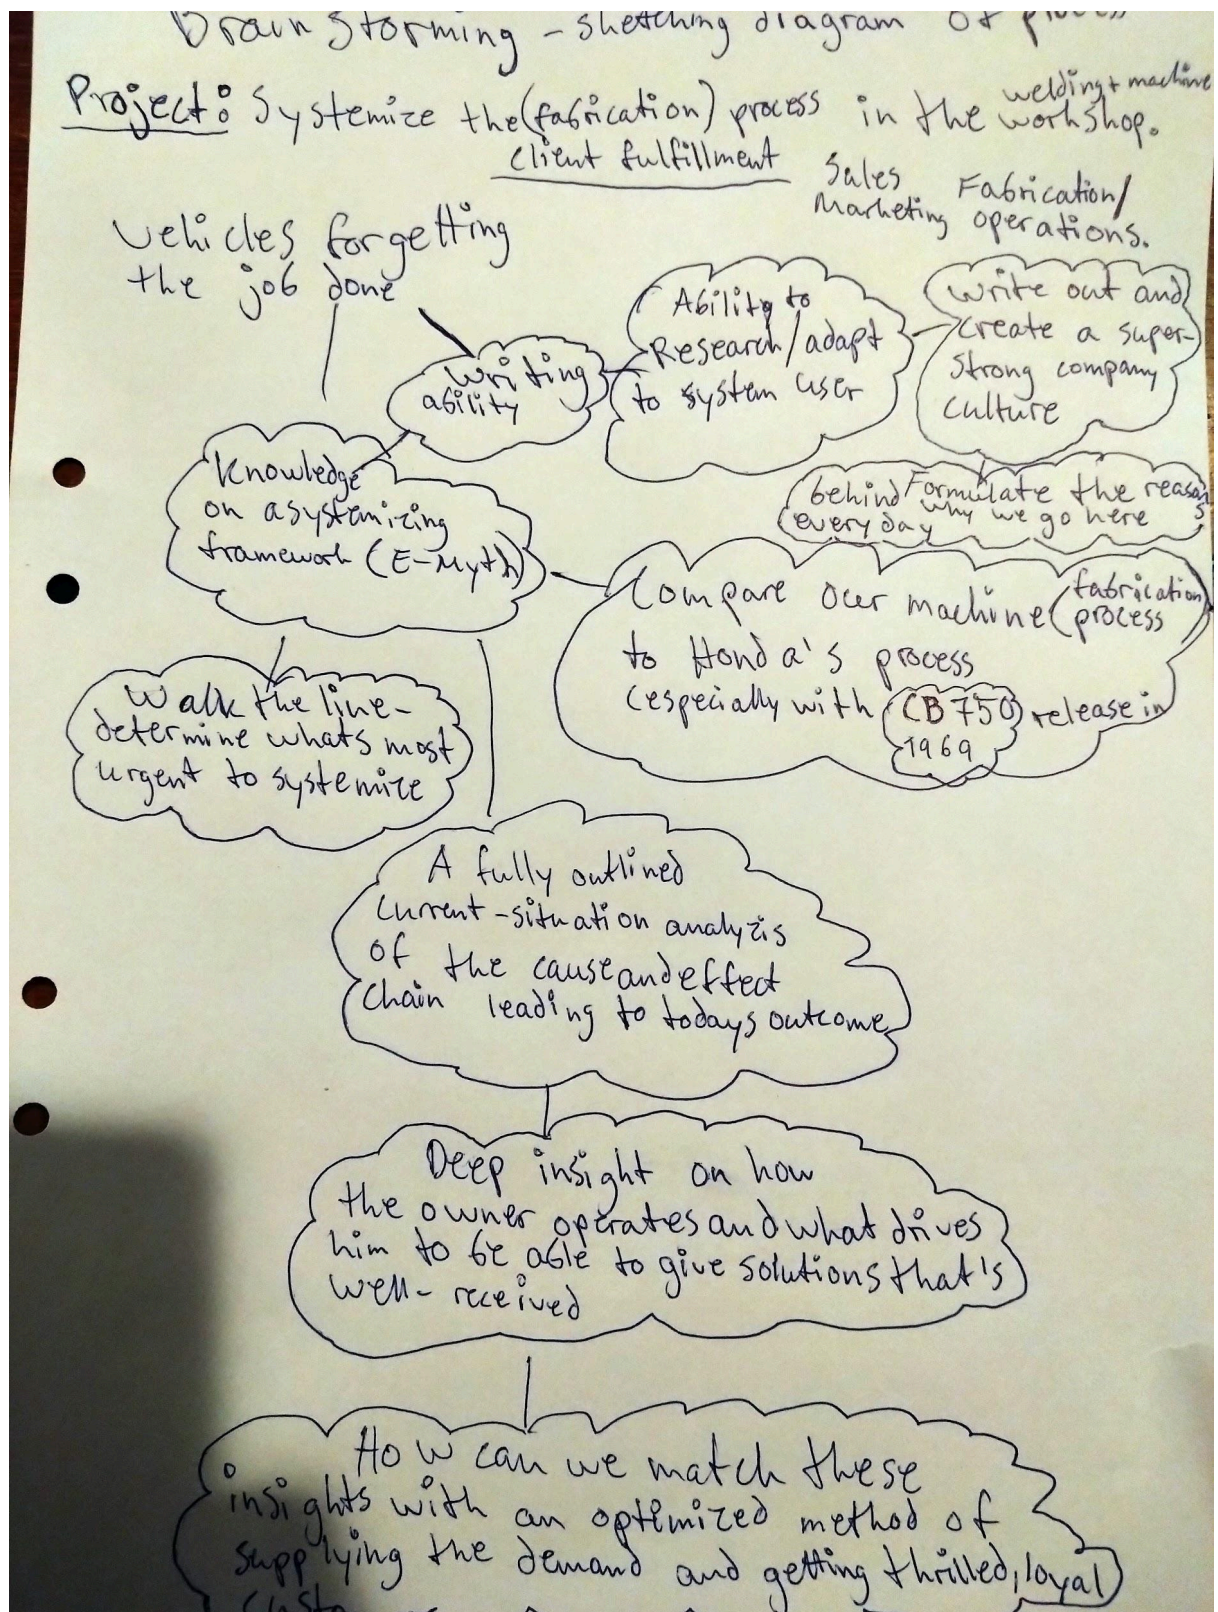 Brainstorming - sketching diagram of process
Project: Systemize the (fabrication) process in the welding + machine workshop.
client fulfillment
Sales
Marketing
Fabrication/
operations.
Vehicles for getting
the job done
Writing
ability
Ability to
Research/adapt
to system user
Write out and
create a super-
strong company
culture
Knowledge
on a systemizing
framework (E-Myth)
Formulate the reasons
behind why we go here
everyday
Compare our machine (fabrication
process
to Honda's process
(especially with CB750 release in
1969
Walk the line-
determine whats most
urgent to systemize
A fully outlined
current-situation analyzis
of the cause and effect
chain leading to todays outcome
Deep insight on how
the owner operates and what drives
him to be able to give solutions that's
well-received
How can we match these
insights with an optimized method of
supplying the demand and getting thrilled, loyal